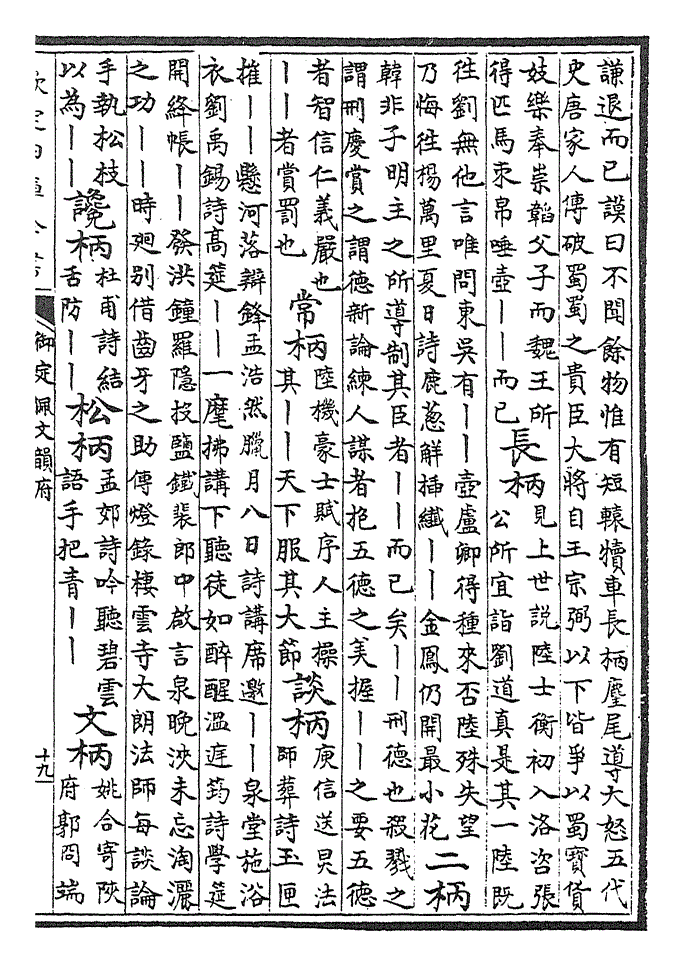 謙退而已謨曰不聞餘物惟有短轅犢車長柄麈尾導大怒五代
史唐家人傳破蜀蜀之貴臣大將自王宗弼以下皆爭以蜀寶貨
妓樂奉崇韜父子而魏王所
得匹馬朿帛唾壺丨丨而已
長柄
見上世説陸士衡初入洛咨張
公所宜詣劉道真是其一陸既
徃劉無他言唯問東吳有丨丨壺盧卿得種來否陸殊失望
乃悔徃楊萬里夏日詩鹿葱解揷纖丨丨金鳳仍開最小花
二柄
韓非子明主之所導制其臣者丨丨而已矣丨丨刑德也殺戮之
謂刑慶賞之謂德新論練人謀者抱五德之美握丨丨之要五德
者智信仁義嚴也
丨丨者賞罰也
常柄
陸機豪士賦序人主操
其丨丨天下服其大節
談柄
庾信送炅法
師葬詩玉匣
摧丨丨懸河落辯鋒孟浩然臘月八日詩講席邀丨丨泉堂施浴
衣劉禹錫詩高筵丨丨一麾拂講下聽徒如醉醒温庭筠詩學筵
開絳帳丨丨發洪鐘羅隱投鹽鐵裴郎中啟言泉晚泱未忘淘灑
之功丨丨時廻別借齒牙之助傳燈錄棲雲寺大朗法師每談論
手執松枝
以為丨丨
讒柄
杜甫詩結
舌防丨丨
松柄
孟郊詩吟聽碧雲
語手把青丨丨
文柄
姚合寄陝
府郭冏端
欽定四庫全書
御定佩文韻府
十九